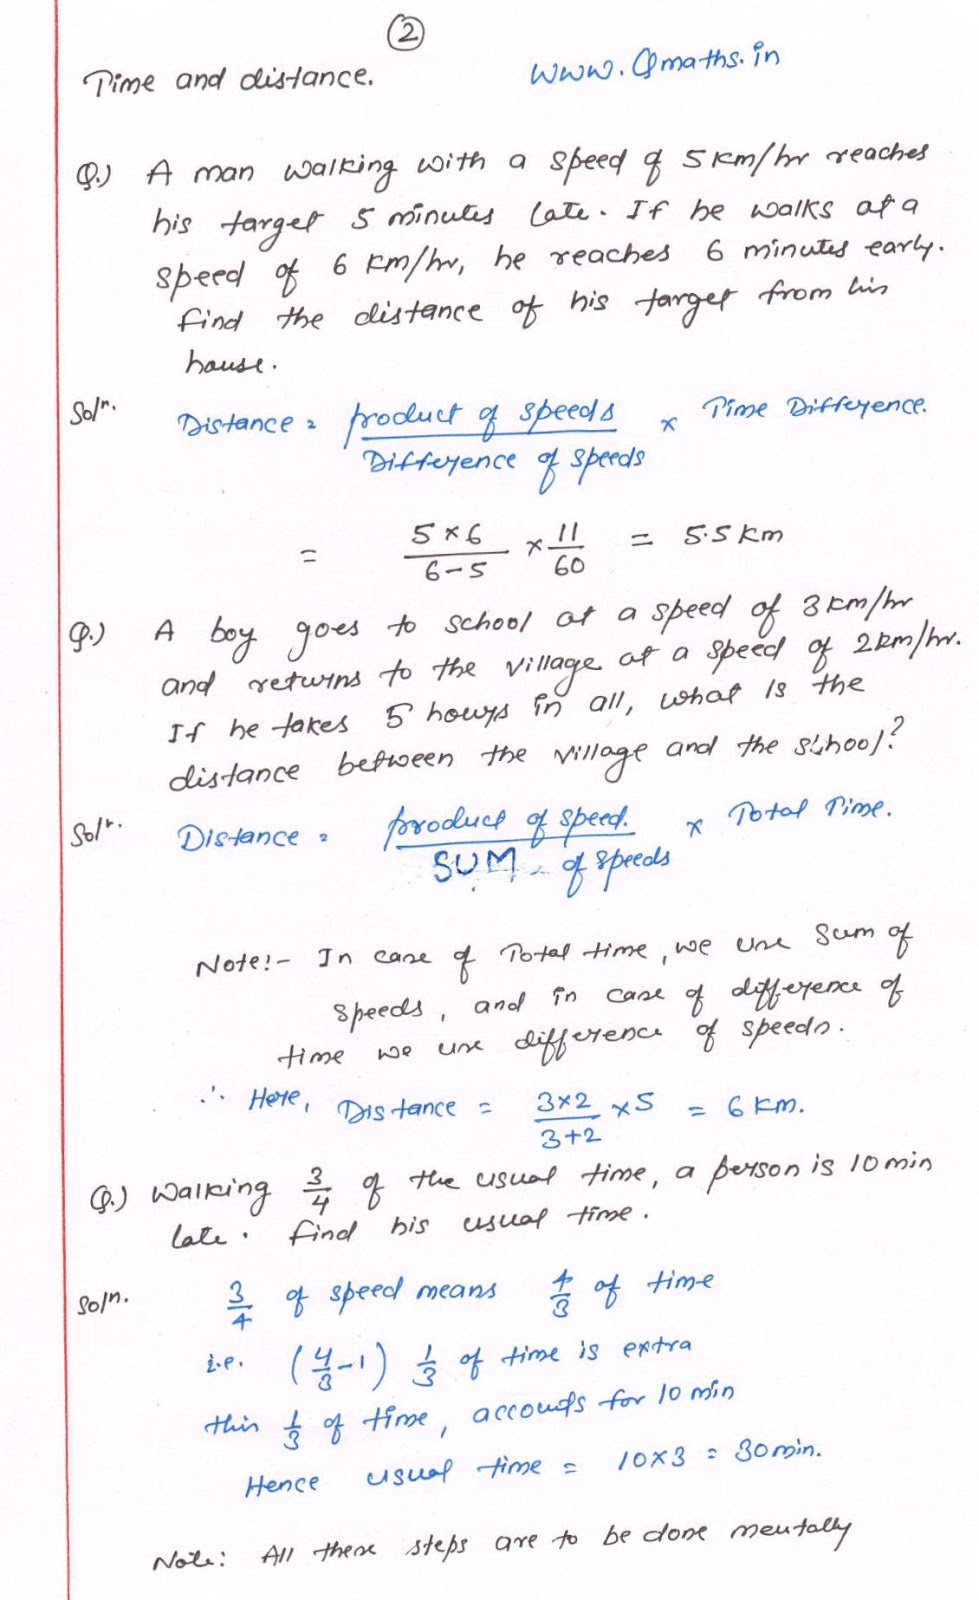 2
Time and distance.
www.Qmaths.in
Q.) A man walking with a speed of 5 km/hr reaches
his target 5 minutes late. If he walks at a
speed of 6 km/hr, he reaches 6 minutes early.
find the distance of his target from his
house.
Soln. Distance = product of speeds / Difference of speeds × Time Difference.
= 5×6 / 6-5 × 11/60 = 5.5 km
Q.) A boy goes to school at a speed of 3 km/hr
and returns to the village at a speed of 2 km/hr.
If he takes 5 hours in all, what is the
distance between the village and the school?
Soln. Distance = product of speed. / SUM of speeds × Total Time.
Note:- In case of Total time, we use sum of
speeds, and in case of difference of
time we use difference of speeds.
∴ Here, Distance = 3×2 / 3+2 ×5 = 6 km.
Q.) Walking 3/4 of the usual time, a person is 10 min
late. find his usual time.
Soln. 3/4 of speed means 4/3 of time
i.e. (4/3 -1) 1/3 of time is extra
this 1/3 of time, accounts for 10 min
Hence usual time = 10×3 = 30 min.
Note: All these steps are to be done mentally